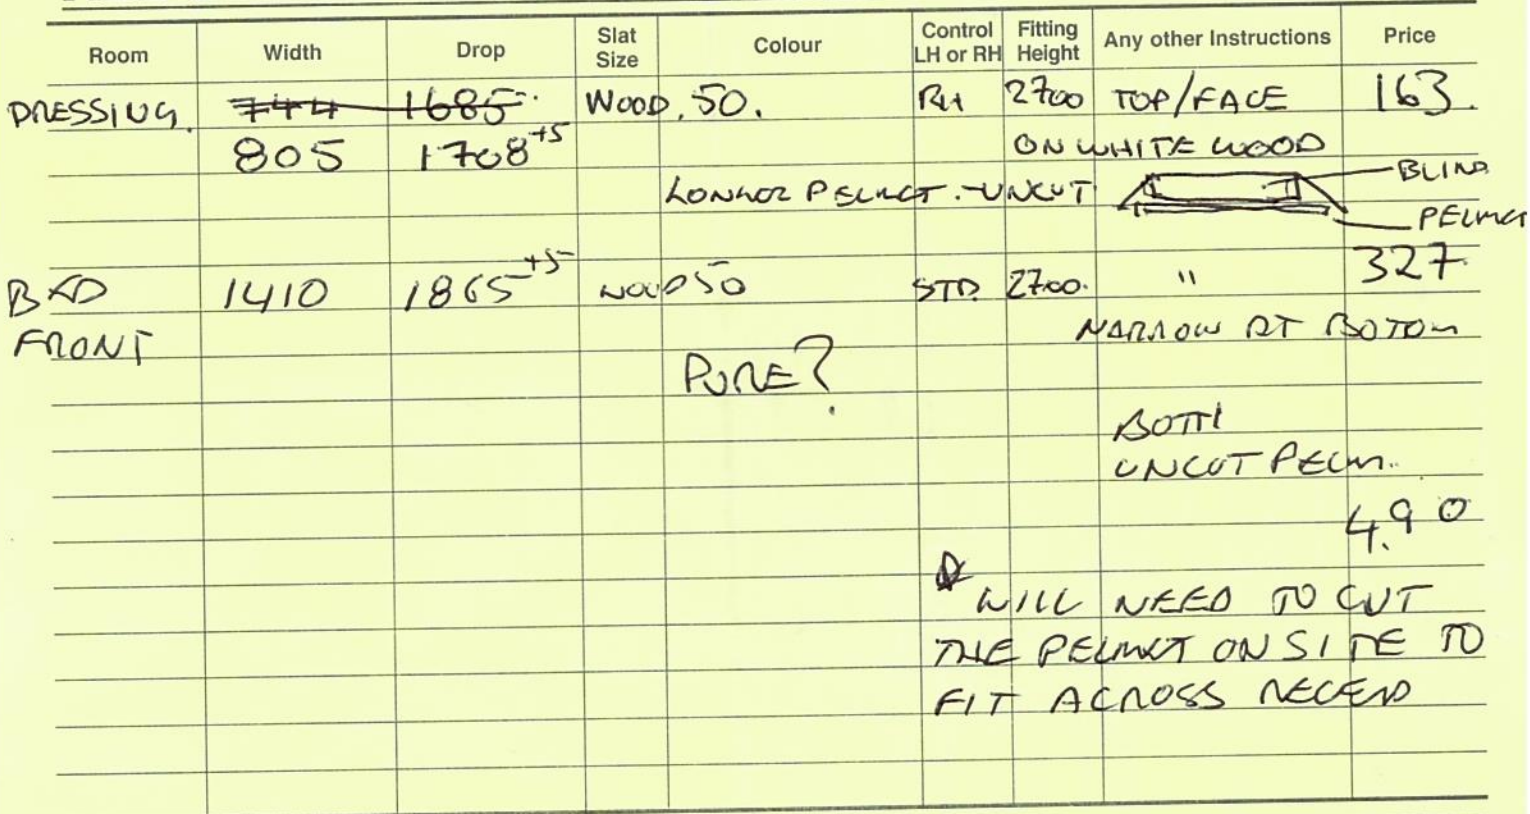 Room Width Drop Slat Size Colour Control LH or RH Fitting Height Any other Instructions Price
DRESSING. 744 1685 WOOD. 50. RH 2700 TOP/FACE 163.
805 1708 +5 ON WHITE WOOD
BLIND
LONGER PELMET - UNCUT
PELMET
BED 1410 1865 +5 WOOD 50 STD. 2700. " 327
FRONT NARROW AT BOTOM
PURE?
BOTH
UNCUT PELM.
4.90
WILL NEED TO CUT
THE PELMET ON SITE TO
FIT ACROSS RECESS